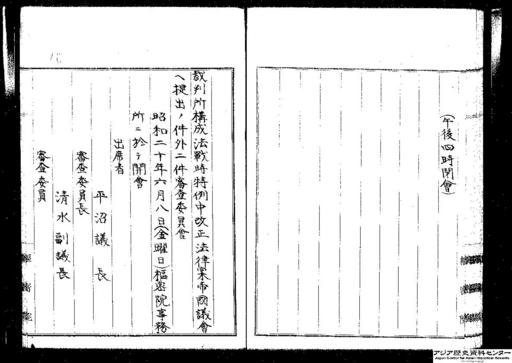 (午後四時閉會)
裁判所構成法戰時特例中改正法律案帝國議會
ヘ提出ノ件外二件審査委員會
昭和二十年六月八日(金曜日)樞密院事務
所ニ於テ開會
出席者
審査委員長
平沼議長
審査委員
清水副議長
アジア歴史資料センター
Japan Center for Asian Historical Records